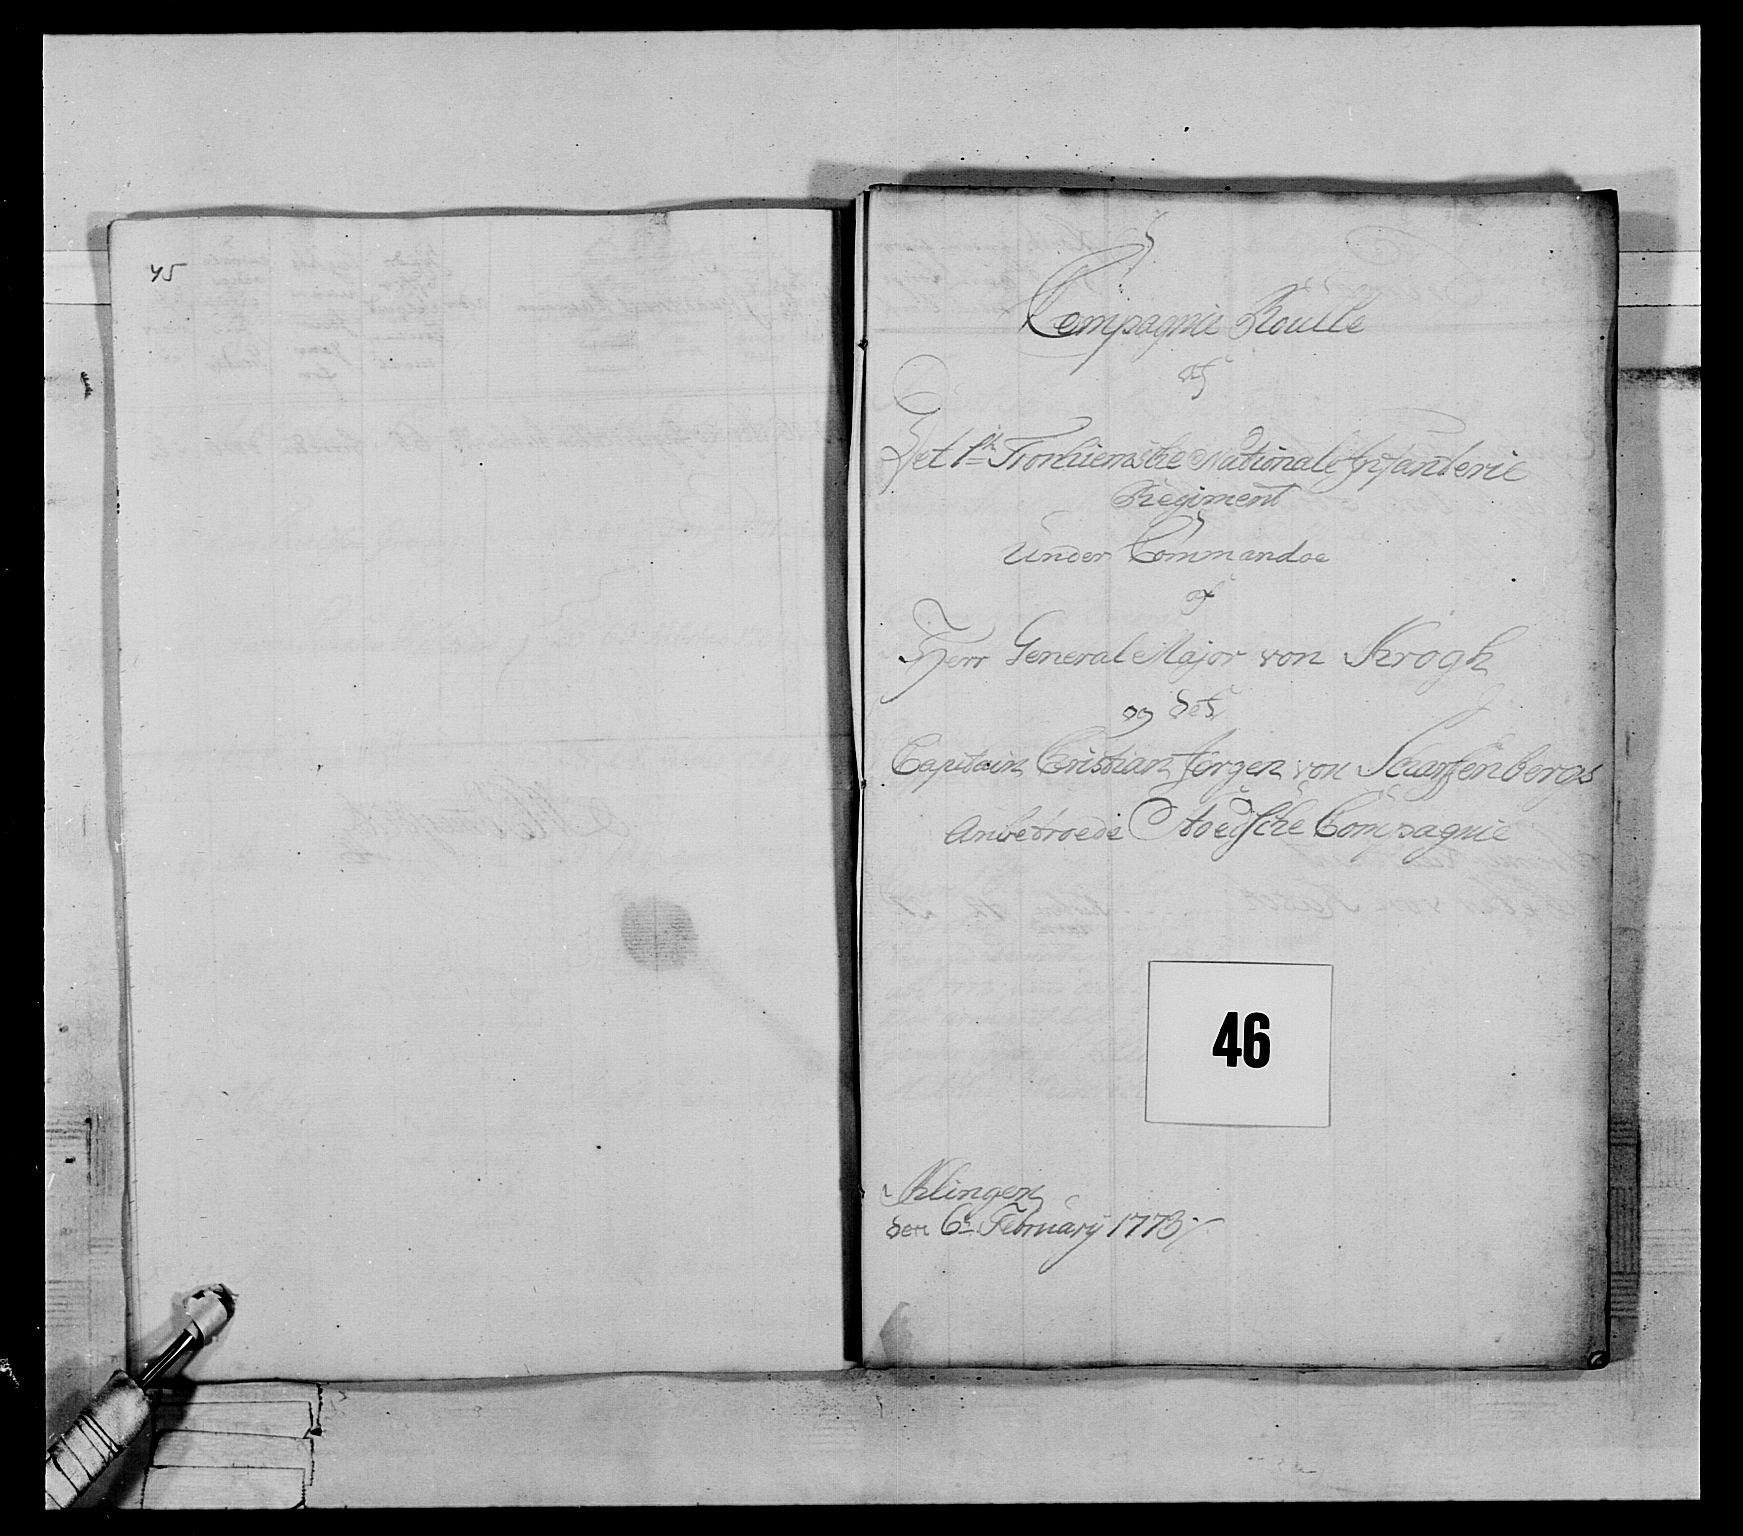 45
Compagnie Roulle
af
Det 1te Tronhiemske Nationale Infanterie
Regiment
Under Commandoe
af
Herr General Major von Krogh
og det
Capitain Cristian Jørgen von Scharffenbergs
Anbetroede Compagnie
46
Klingen
den 6te February 1773